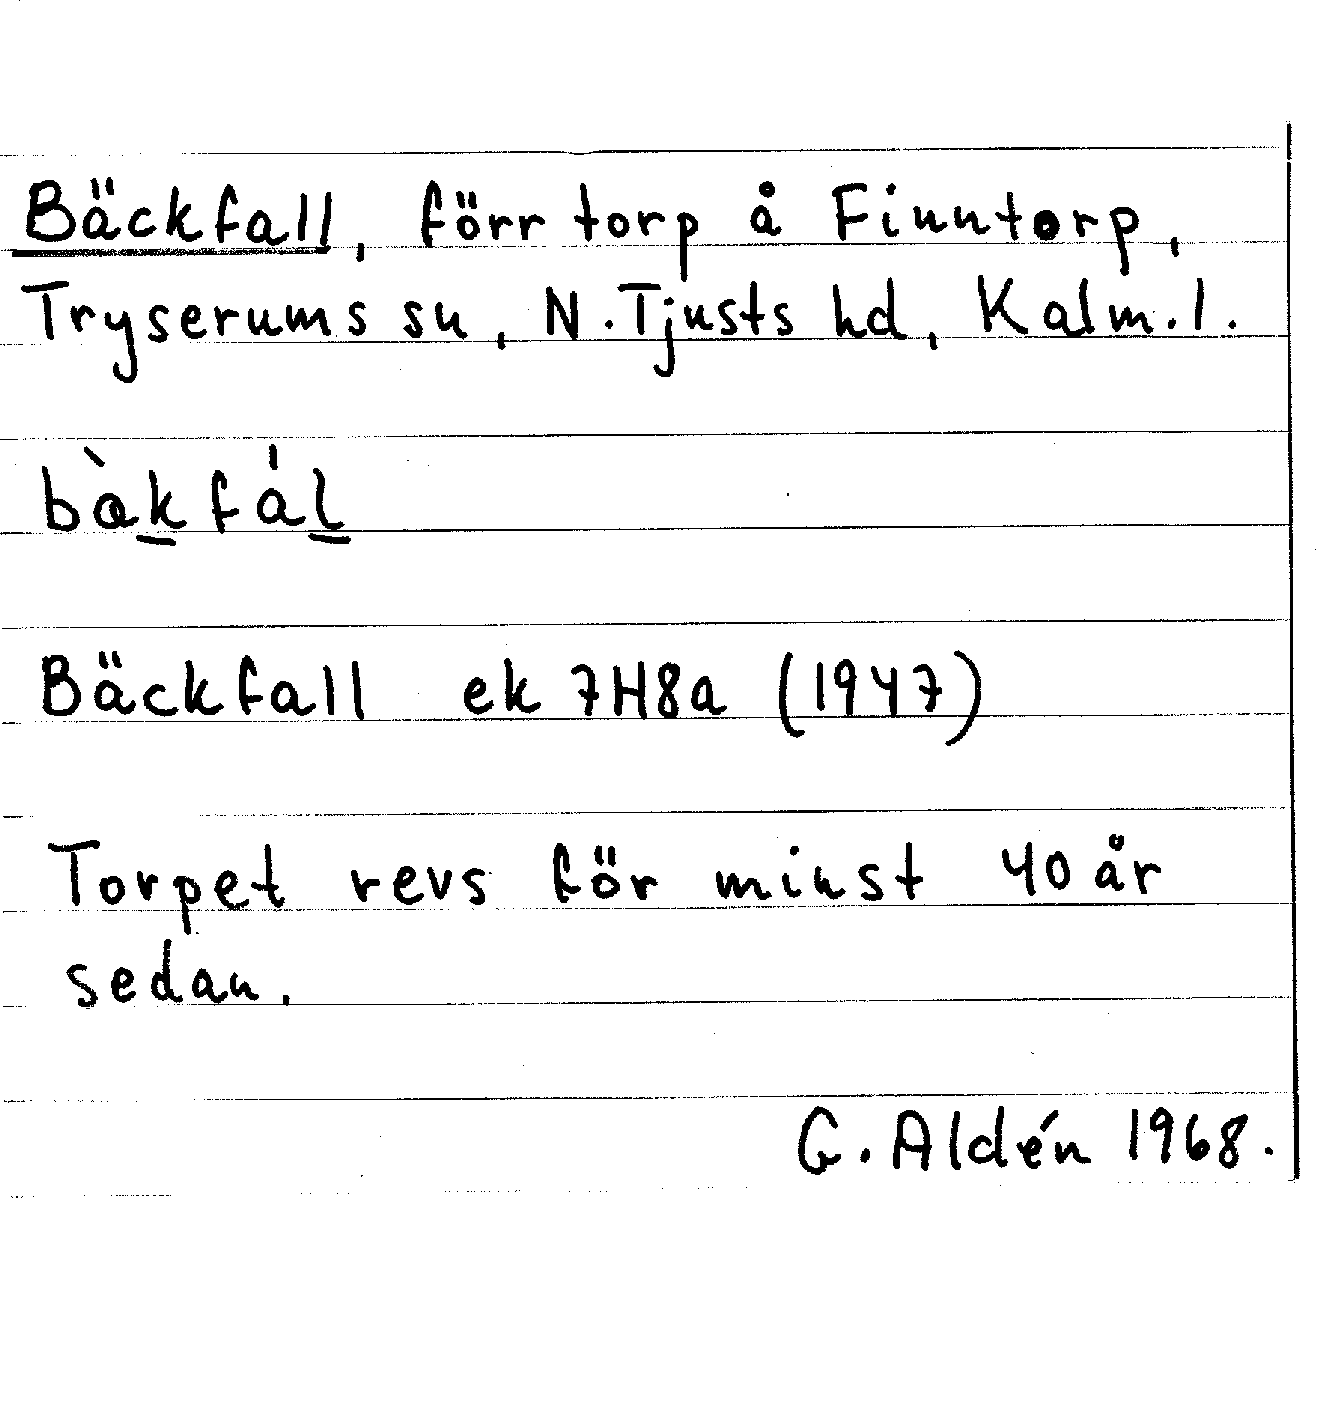 Bäckfall, förr torp å Finntorp,
Tryserums sn, N. Tjusts hd, Kalm. l.
bàkfál
Bäckfall ek 7H8a (1947)
Torpet revs för minst 40 år
sedan.
G. Aldén 1968.